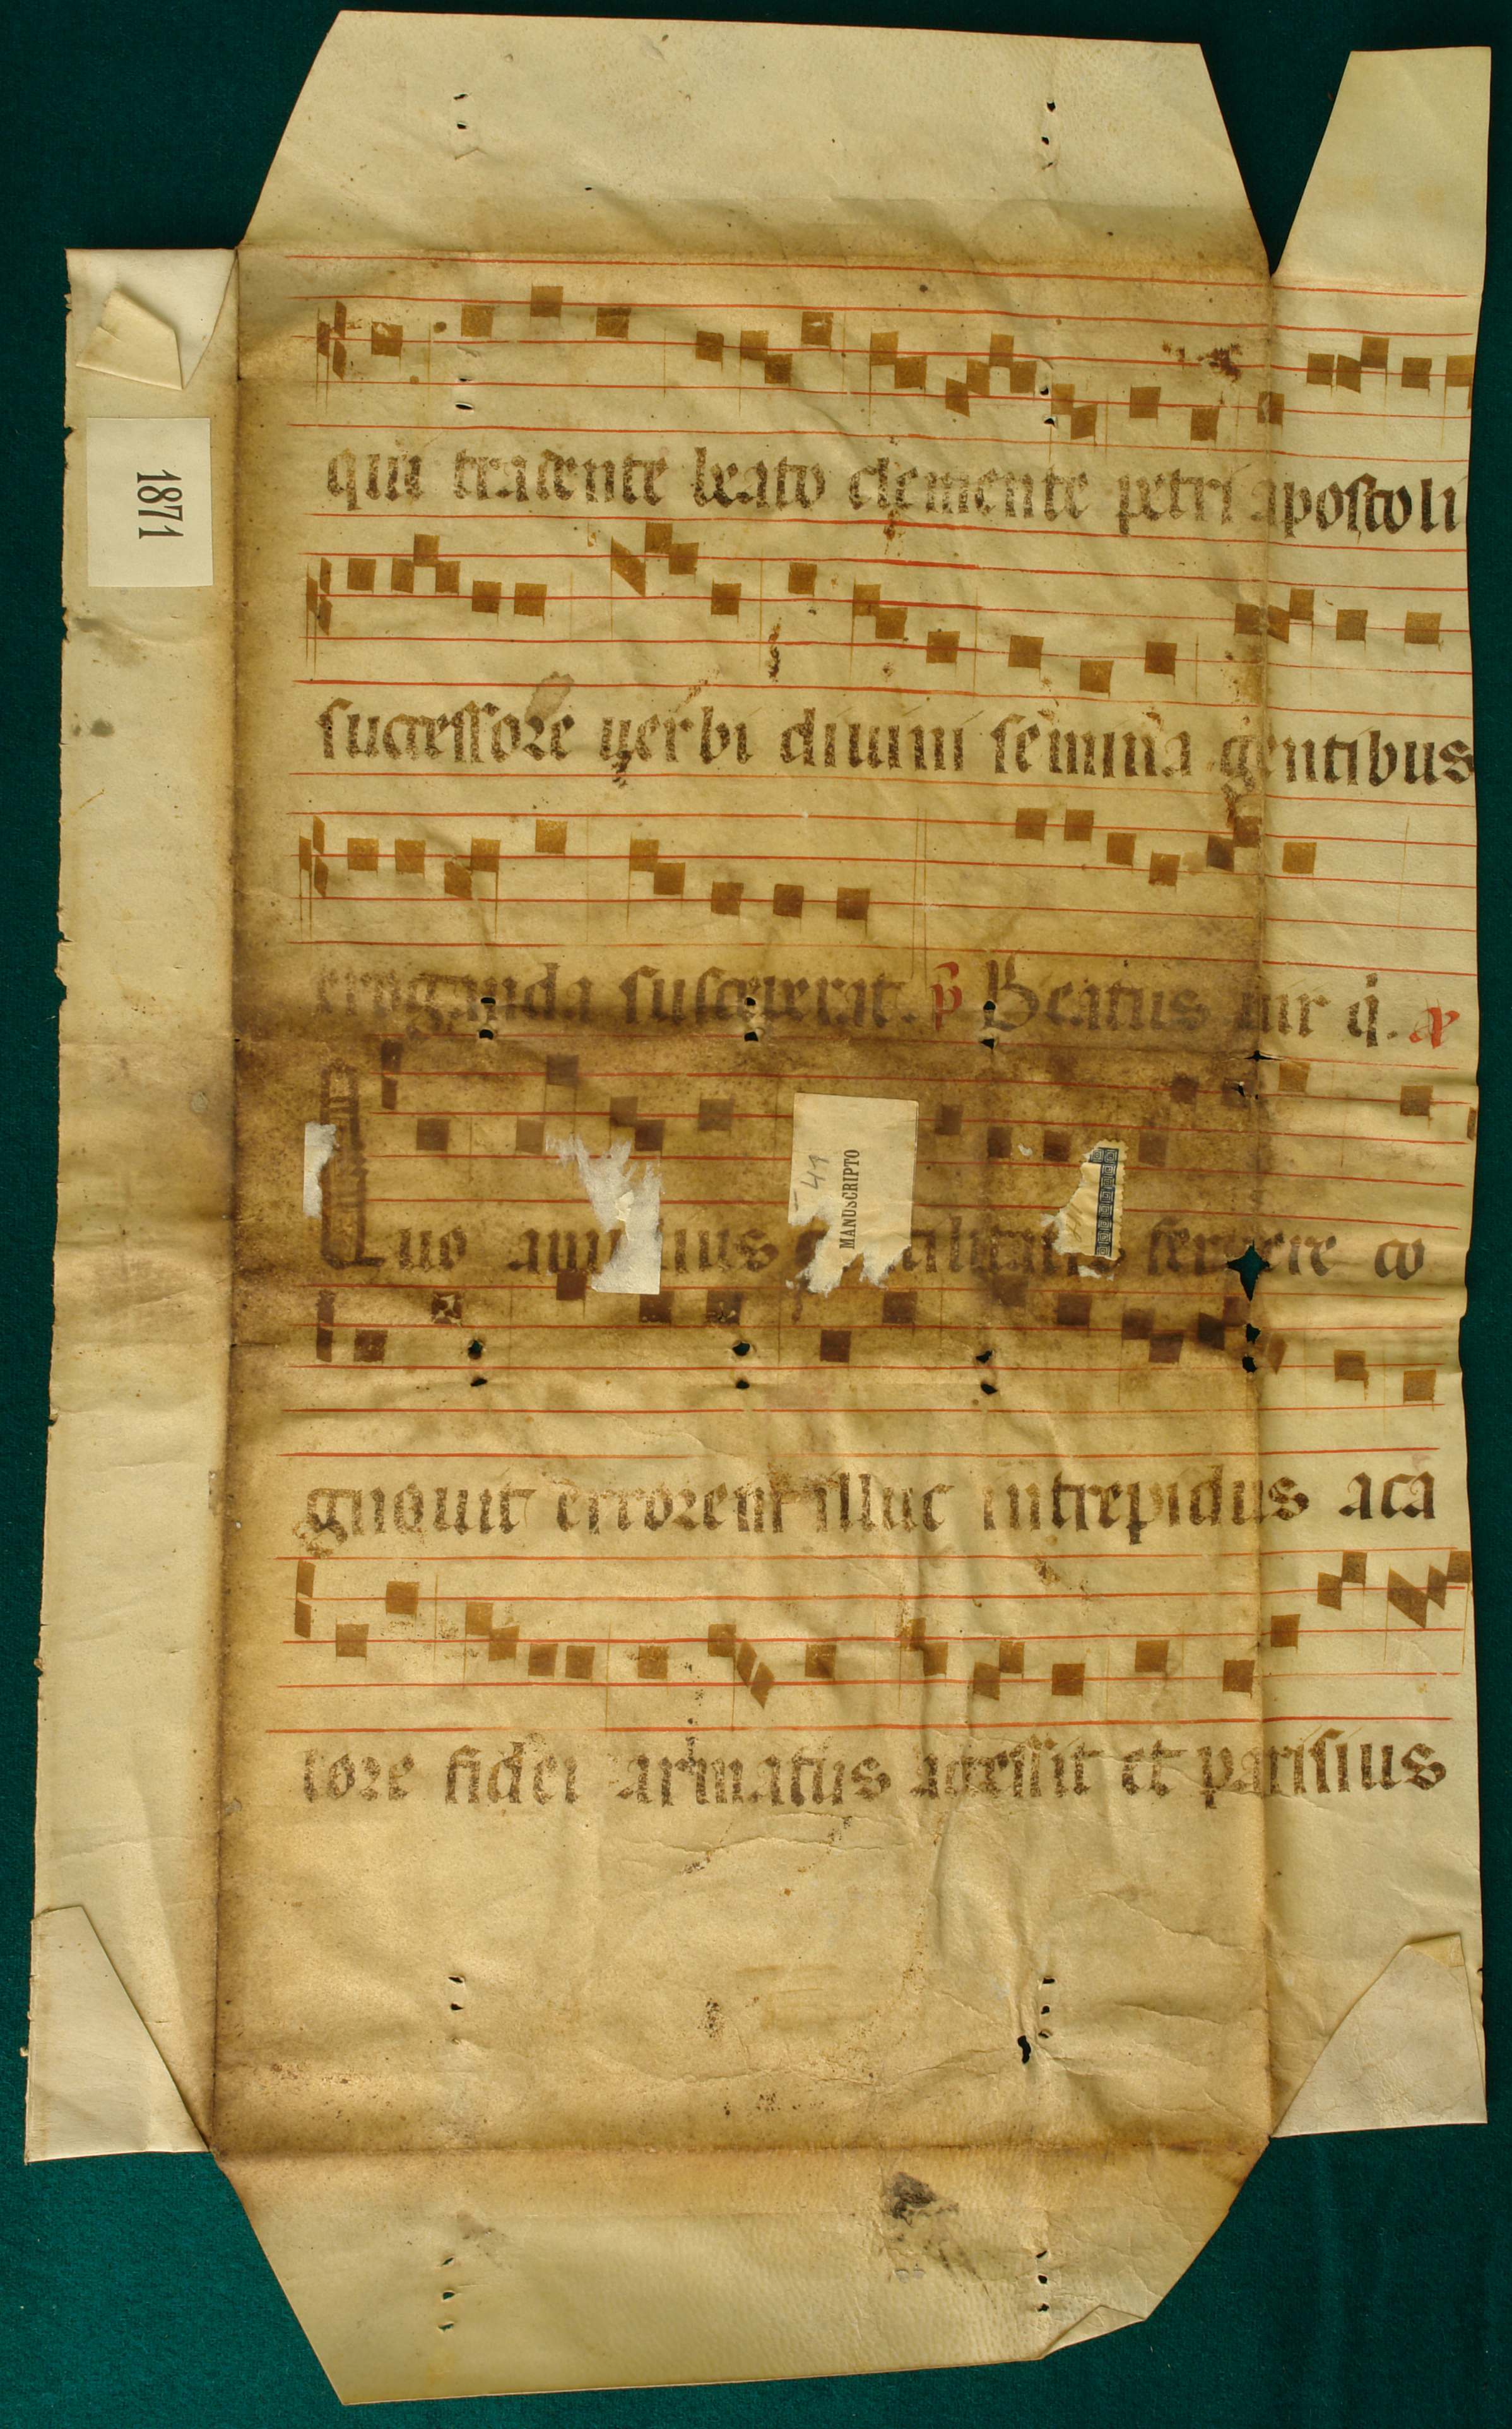 1871
qui tradente beato clemente petri apostoli
successore verbi diuini semina gentibus
eroganda susceperat. p̄ Beatus uir ij. 
41
MANUSCRIPTO
Quo seruere co
gnouit errorem illuc intrepidus aca
lore fidei armatus accessit et parisius